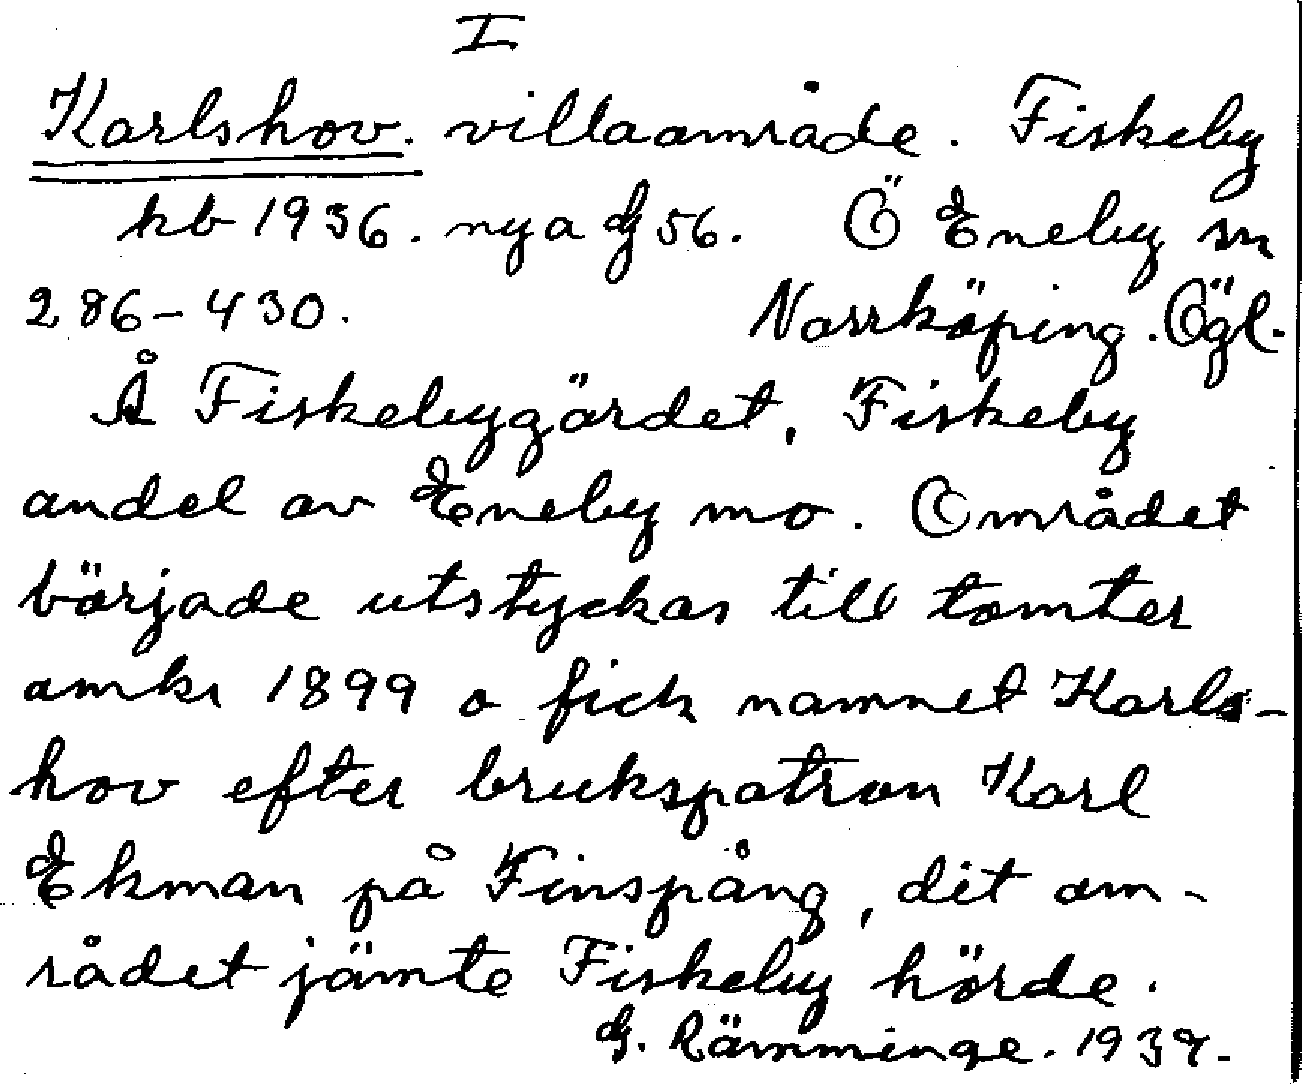 I
Karlshov. villaområde. Fiskeby
kb 1936. nya G 56. Ö Eneby sn
286-430. Norrköping. Ögl.
Å Fiskebygärdet, Fiskeby
andel av Eneby mo. Området
började utstyckas till tomter
omkr 1899 o fick namnet Karls-
hov efter brukspatron Karl
Ekman på Finspång, dit om-
rådet jämte Fiskeby hörde.
G. Rämminge. 1939.